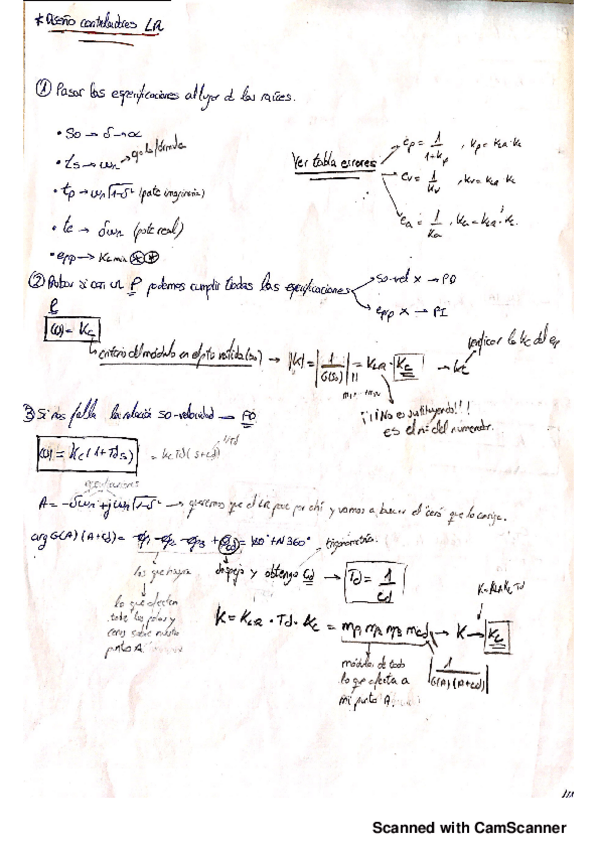 * Diseño controladores LR
① Pasar las especificaciones al lugar de las raíces.
• So → δ → α
• ts → ωn → qo la fórmula
• tp → ωn√1-δ² (parte imaginaria)
• tc → δωn (parte real)
• epp → Kc min ⊛⊛
Ver tabla errores
ep = 1/(1+Kp) , Kp = KLR·Kc
ev = 1/Kv , Kv = KLR·Kc
ea = 1/Ka , Ka = KLR·Kc
② Probar si con un P podemos cumplir todas las especificaciones
so-vel x → PD
epp x → PI
P
C(s) = Kc
criterio del módulo en el pto (so) → |K| = |1/G(so)| = KLR·Kc → Kc
verificar la Kc del ep
¡¡¡No es sustituyendo!!!
es el nº del numerador.
③ Si nos falla la relación so-velocidad → PD
C(s) = Kc(1+Td s) = Kc Td(s+cd)
1/Td
especificaciones
A = -δωn + jωn√1-δ² → queremos que el LR pase por ahí y vamos a buscar el cero que lo consiga.
arg G(A)(A+cd) = -φ1 -φ2 -φ3 + φcd = 180°+N360°
trigonometría
los que haya
despejo y obtengo cd → Td = 1/cd
lo que afectan
todos los polos y
ceros sobre nuestro
punto A.
K = KLR Kc Td
K = KLR · Td · Kc = m1 m2 m3 mcd → K → Kc
módulo de todo
lo que afecta a
mi punto A.
|1/G(A)(A+cd)|
Scanned with CamScanner